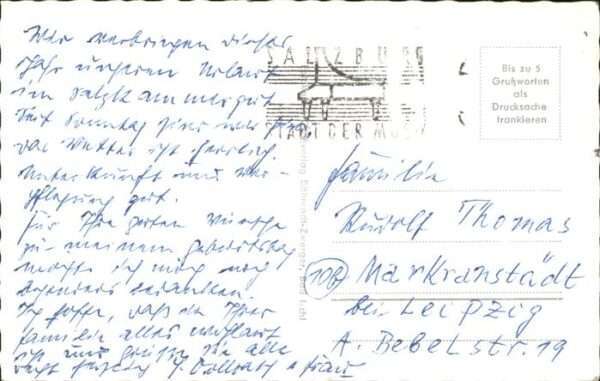 Wir verbringen dieses
Jahr unseren Urlaub
im Salzkammergut
Seit Sonntag sind wir hier
das Wetter ist herrlich.
Unterkunft und Ver-
pflegung gut.
Für Ihre guten Wünsche
zu meinem Geburtstag
möchte ich mich noch
besonders bedanken.
Ich hoffe, daß in Ihrer
Familie alles wohlauf
ist und grüße Sie alle
recht herzlich & Frau
SALZBURG
STADT DER MUSIK
Bis zu 5
Grußworten
als
Drucksache
frankieren
Familie
Rudolf Thomas
(10b) Markranstädt
bei Leipzig
A. Bebelstr. 19